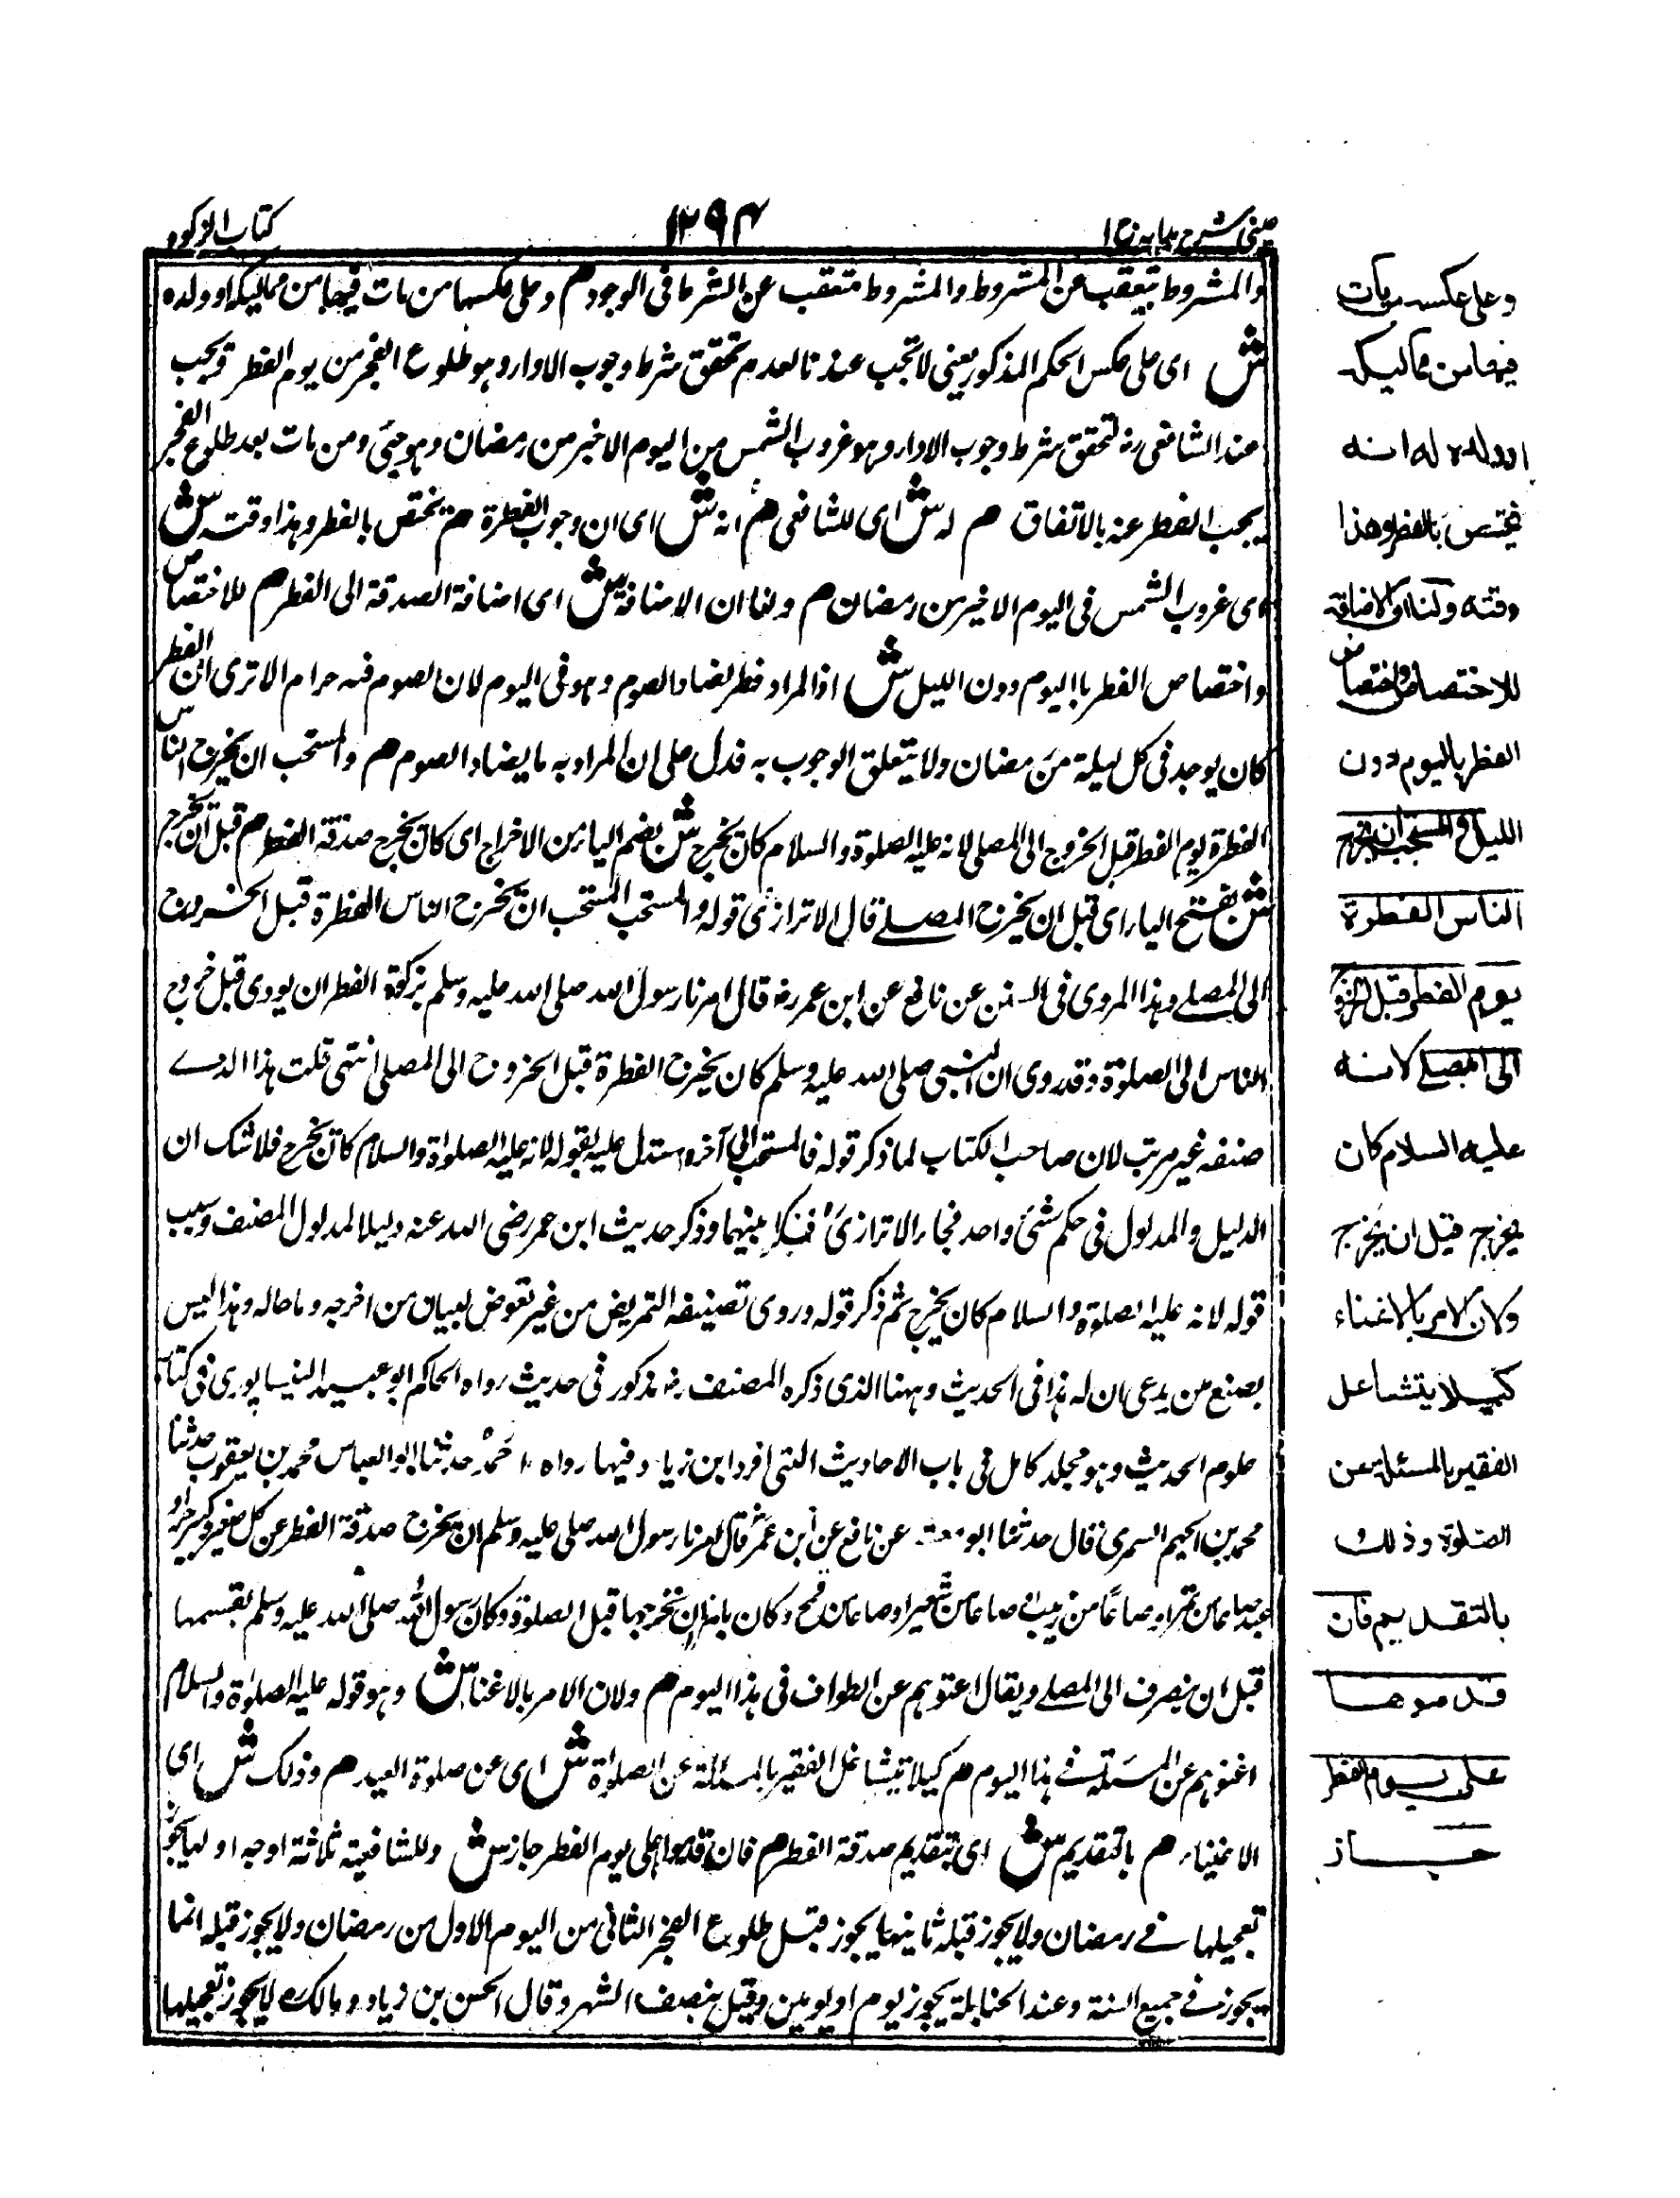 عینی شرح ہدایہ ج ا
۱۲۹۴
کتاب الزکوۃ
والمشروط یتعقب عن المشروط والمشروط متعقب عن الشرط فی الوجود م وعلی عکسہا من مات فیہا من ممالیکہ او ولدہ
ش ای علی عکس الحکم المذکور یعنی لا تجب عندنا لعدم تحقق شرط وجوب الاداء وہو طلوع الفجر من یوم الفطر وتجب
عند الشافعی رہ لتحقق شرط وجوب الاداء وہو غروب الشمس من الیوم الاخیر من رمضان وہو حیئ ومن مات بعد طلوع الفجر
یجب الفطر عنہ بالاتفاق م لہ ش ای للشافعی م انہ ش ای ان وجوب الفطرۃ م یختص بالفطر وہذا وقتہ ش
ای غروب الشمس فی الیوم الاخیر من رمضان م ولنا ان الاضافۃ ش ای اضافۃ الصدقۃ الی الفطر م للاختصاص
واختصاص الفطر بالیوم دون اللیل ش اذ المراد فطر یضاد الصوم وہو فی الیوم لان الصوم فیہ حرام الا تری ان الفطر
کان یوجد فی کل لیلۃ من رمضان ولا یتعلق الوجوب بہ فدل علی ان المراد بہ ما یضاد الصوم م والمستحب ان یخرج الناس
الفطرۃ یوم الفطر قبل الخروج الی المصلی لانہ علیہ الصلوۃ والسلام کان یخرج ش بضم الیاء من الاخراج ای کان یخرج صدقۃ الفطر م قبل ان یخرج
ش بفتح الیاء ای قبل ان یخرج المصلے قال الاترازی قولہ والمستحب المستحب ان یخرج الناس الفطرۃ قبل الخروج
الی المصلے وہذا المروی فی السنن عن نافع عن ابن عمر رہ قال امرنا رسول اللہ صلی اللہ علیہ وسلم بزکوۃ الفطر ان یودی قبل خروج
الناس الی الصلوۃ وقد روی ان النبی صلی اللہ علیہ وسلم کان یخرج الفطرۃ قبل الخروج الی المصلی انتہی قلت ہذا الذے
صنفہ غیر مرتب لان صاحب الکتاب لما ذکر قولہ فالمستحب الی آخرہ استدل علیہ بقولہ لانہ علیہ الصلوۃ والسلام کان یخرج فلا شک ان
الدلیل والمدلول فی حکم شئ واحد فجاء الاترازی بینہما وذکر حدیث ابن عمر رضی اللہ عنہ دلیلا لمدلول المصنف وسبب
قولہ لانہ علیہ الصلوۃ والسلام کان یخرج ثم ذکر قولہ وروی تصنیفہ التمریض من غیر تعوض لبیان من اخرجہ وما حالہ وہذا لیس
بصنع من یدعی ان لہ ہذا فی الحدیث وہہنا الذی ذکرہ المصنف رہ مذکور فی حدیث رواہ الحاکم ابو عبید النیسا پوری فی کتاب
علوم الحدیث وہو مجلد کامل فی باب الاحادیث التی افرد ابن زیاد فیہا رواہ حدثنا ابو العباس محمد بن یعقوب حدثنا
محمد بن الجہم السمری قال حدثنا ابو عن نافع عن ابن عمر قال امرنا رسول اللہ صلی علیہ وسلم ان یخرج صدقۃ الفطر عن کل صغیر وکبیر حر او
عبد صاعا من تمر او صاعًا من زبیب او صاعا من شعیر او صاعا من قمح وکان یامرنا ان نخرجہا قبل الصلوۃ وکان رسول اللہ صلی اللہ علیہ وسلم یقسمہا
قبل ان ینصرف الی المصلے ویقال اغنوہم عن الطواف فی ہذا الیوم م ولان الامر بالاغناء ش وہو قولہ علیہ الصلوۃ والسلام
اغنوہم عن المسئلۃ فے ہذا الیوم م کیلا یتشاغل الفقیر بالمسالۃ عن الصلوۃ ش ای عن صلوۃ العید م وذلک ش ای
الاغنیاء م بالتقدیم ش ای بتقدیم صدقۃ الفطر م فان قدموہا علی یوم الفطر جاز ش وللشافعیۃ ثلاثۃ اوجہ اولہا یجوز
تعجیلہا فے رمضان ولا یجوز قبلہ ثانیہا یجوز قبل طلوع الفجر الثانی من الیوم الاول من رمضان ولا یجوز قبلہ
یجوز فے جمیع السنۃ وعند الحنابلۃ یجوز یوم او یومین وقیل بنصف الشہر وقال الحسن بن زیاد ومالک لا یجوز تعجیلہا
وعلی عکسہ من مات
فیہا من ممالیکہ
او ولدہ لہ انہ
یختص بالفطر وھذا
وقتہ ولنا ان الاضافۃ
للاختصاص واختصاص
الفطر بالیوم دون
اللیل والمستحب ان یخرج
الناس الفطرۃ
یوم الفطر قبل الخروج
الی المصلے لانہ
علیہ السلام کان
یخرج قبل ان یخرج
ولان الامر بالاغناء
کیلا یتشاغل
الفقیر بالمسئلۃ عن
الصلوۃ وذلک
بالتقدیم فان
قدموھا
علی یوم الفطر
جاز